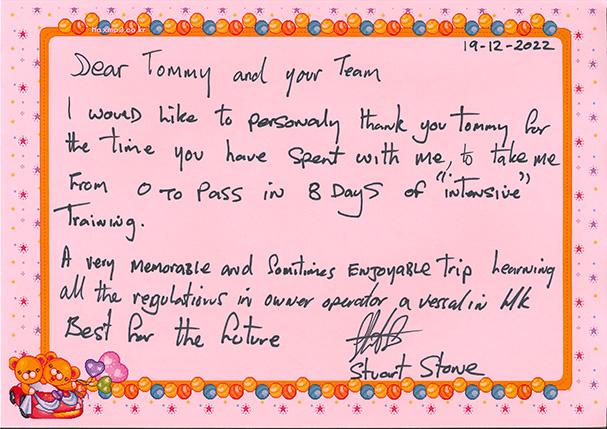 19-12-2022
Dear Tommy and your Team
I would like to personaly thank you Tommy for
the time you have spent with me, to take me
From 0 To Pass in 8 Days of "intensive"
Training.
A very memorable and Somtimes ENJOYABLE Trip Learning
all the regulations in owner operator a vessal in HK
Best for the future
Stuart